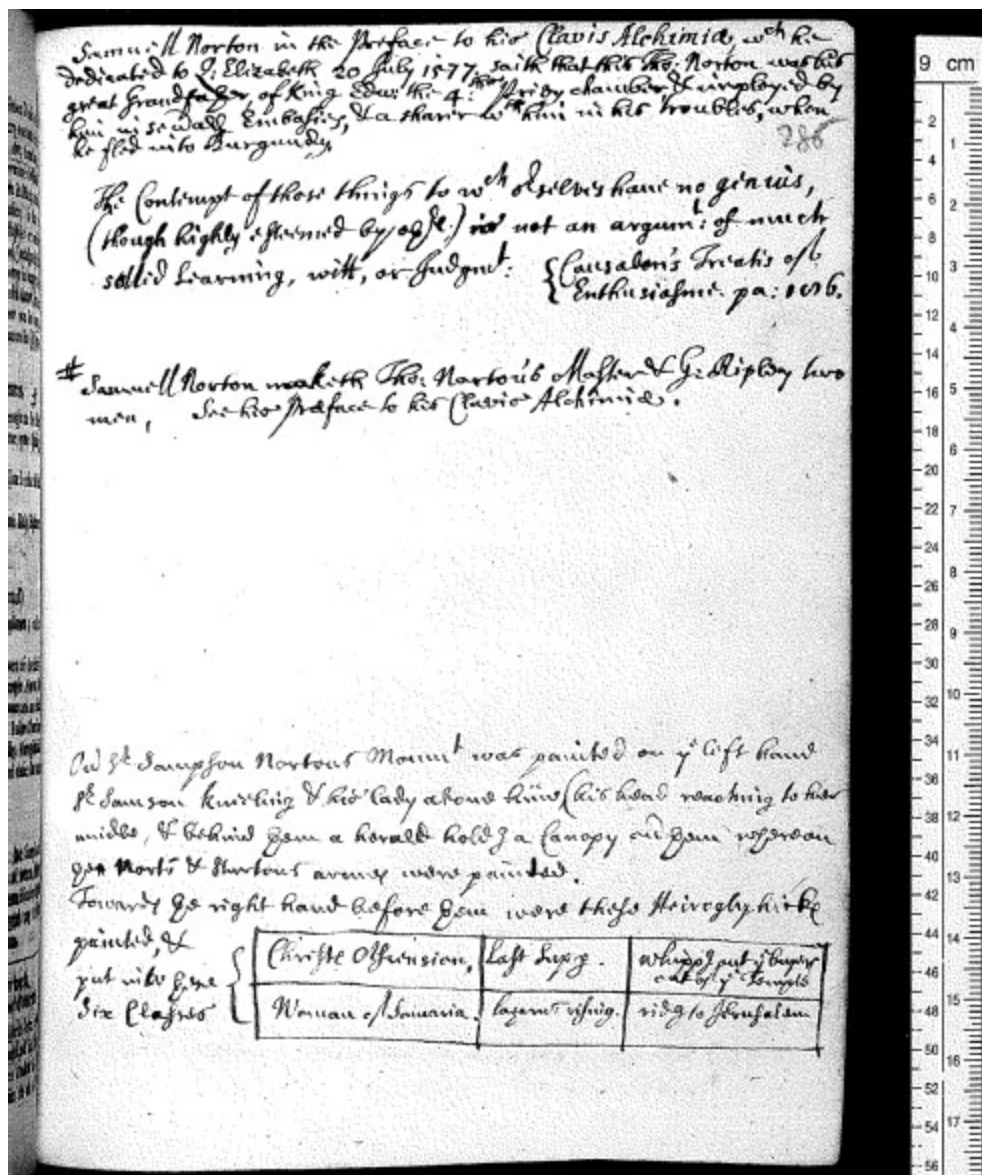 Samuell Norton in the Preface to his Clavis Alchimiæ, wch he
dedicated to Q: Elizabeth 20 July 1577, saith that this Tho: Norton was his
great Grandfather, of King Edw: the 4: Privy chamber & imployed by
him in severall Embasies, & a sharer wth him in his troubles, when
he fled into Burgundy
286
The Contempt of those things to wch o:selves have no genius,
(though highly esteemed by) is not an argumt: of much
sollid Learning, witt, or Judgmt:
Causabon's Treatis of
Enthusiasme. pa:
# Samuell Norton maketh Tho: Nortons Master & G: Ripley two
men, See his Præface to his Clavis Alchimiæ.
On Sr Sampson Nortons Monumt was painted on ye left hand
Sr Samson kneeling & his lady above him (his head reaching to her
midle, & behind them a herald a Canopy them whereon
the Norts & armes were painted.
Towards the right hand before them were these Heiroglyphicks
painted, &
put into these
Six Classes
Christs Asscension, Last Supp. whipps out ye buyers
out of ye Temple
Woman of Samaria. Lazarus rising. rids to Jerusalem
9 cm
2
4
6
8
10
12
14
16
18
20
22
24
26
28
30
32
34
36
38
40
42
44
46
48
50
52
54
56
1
2
3
4
5
6
7
8
9
10
11
12
13
14
15
16
17